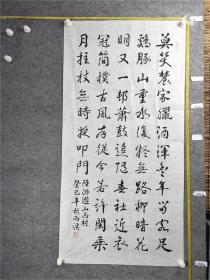 莫笑農家臘酒渾豐年留客足
鷄豚山重水復疑無路柳暗花
明又一邨蕭鼓追随春社近衣
冠簡樸古風存從今若許閑乘
月拄杖無時夜叩門
陸游遊山西村
癸巳年秋雨